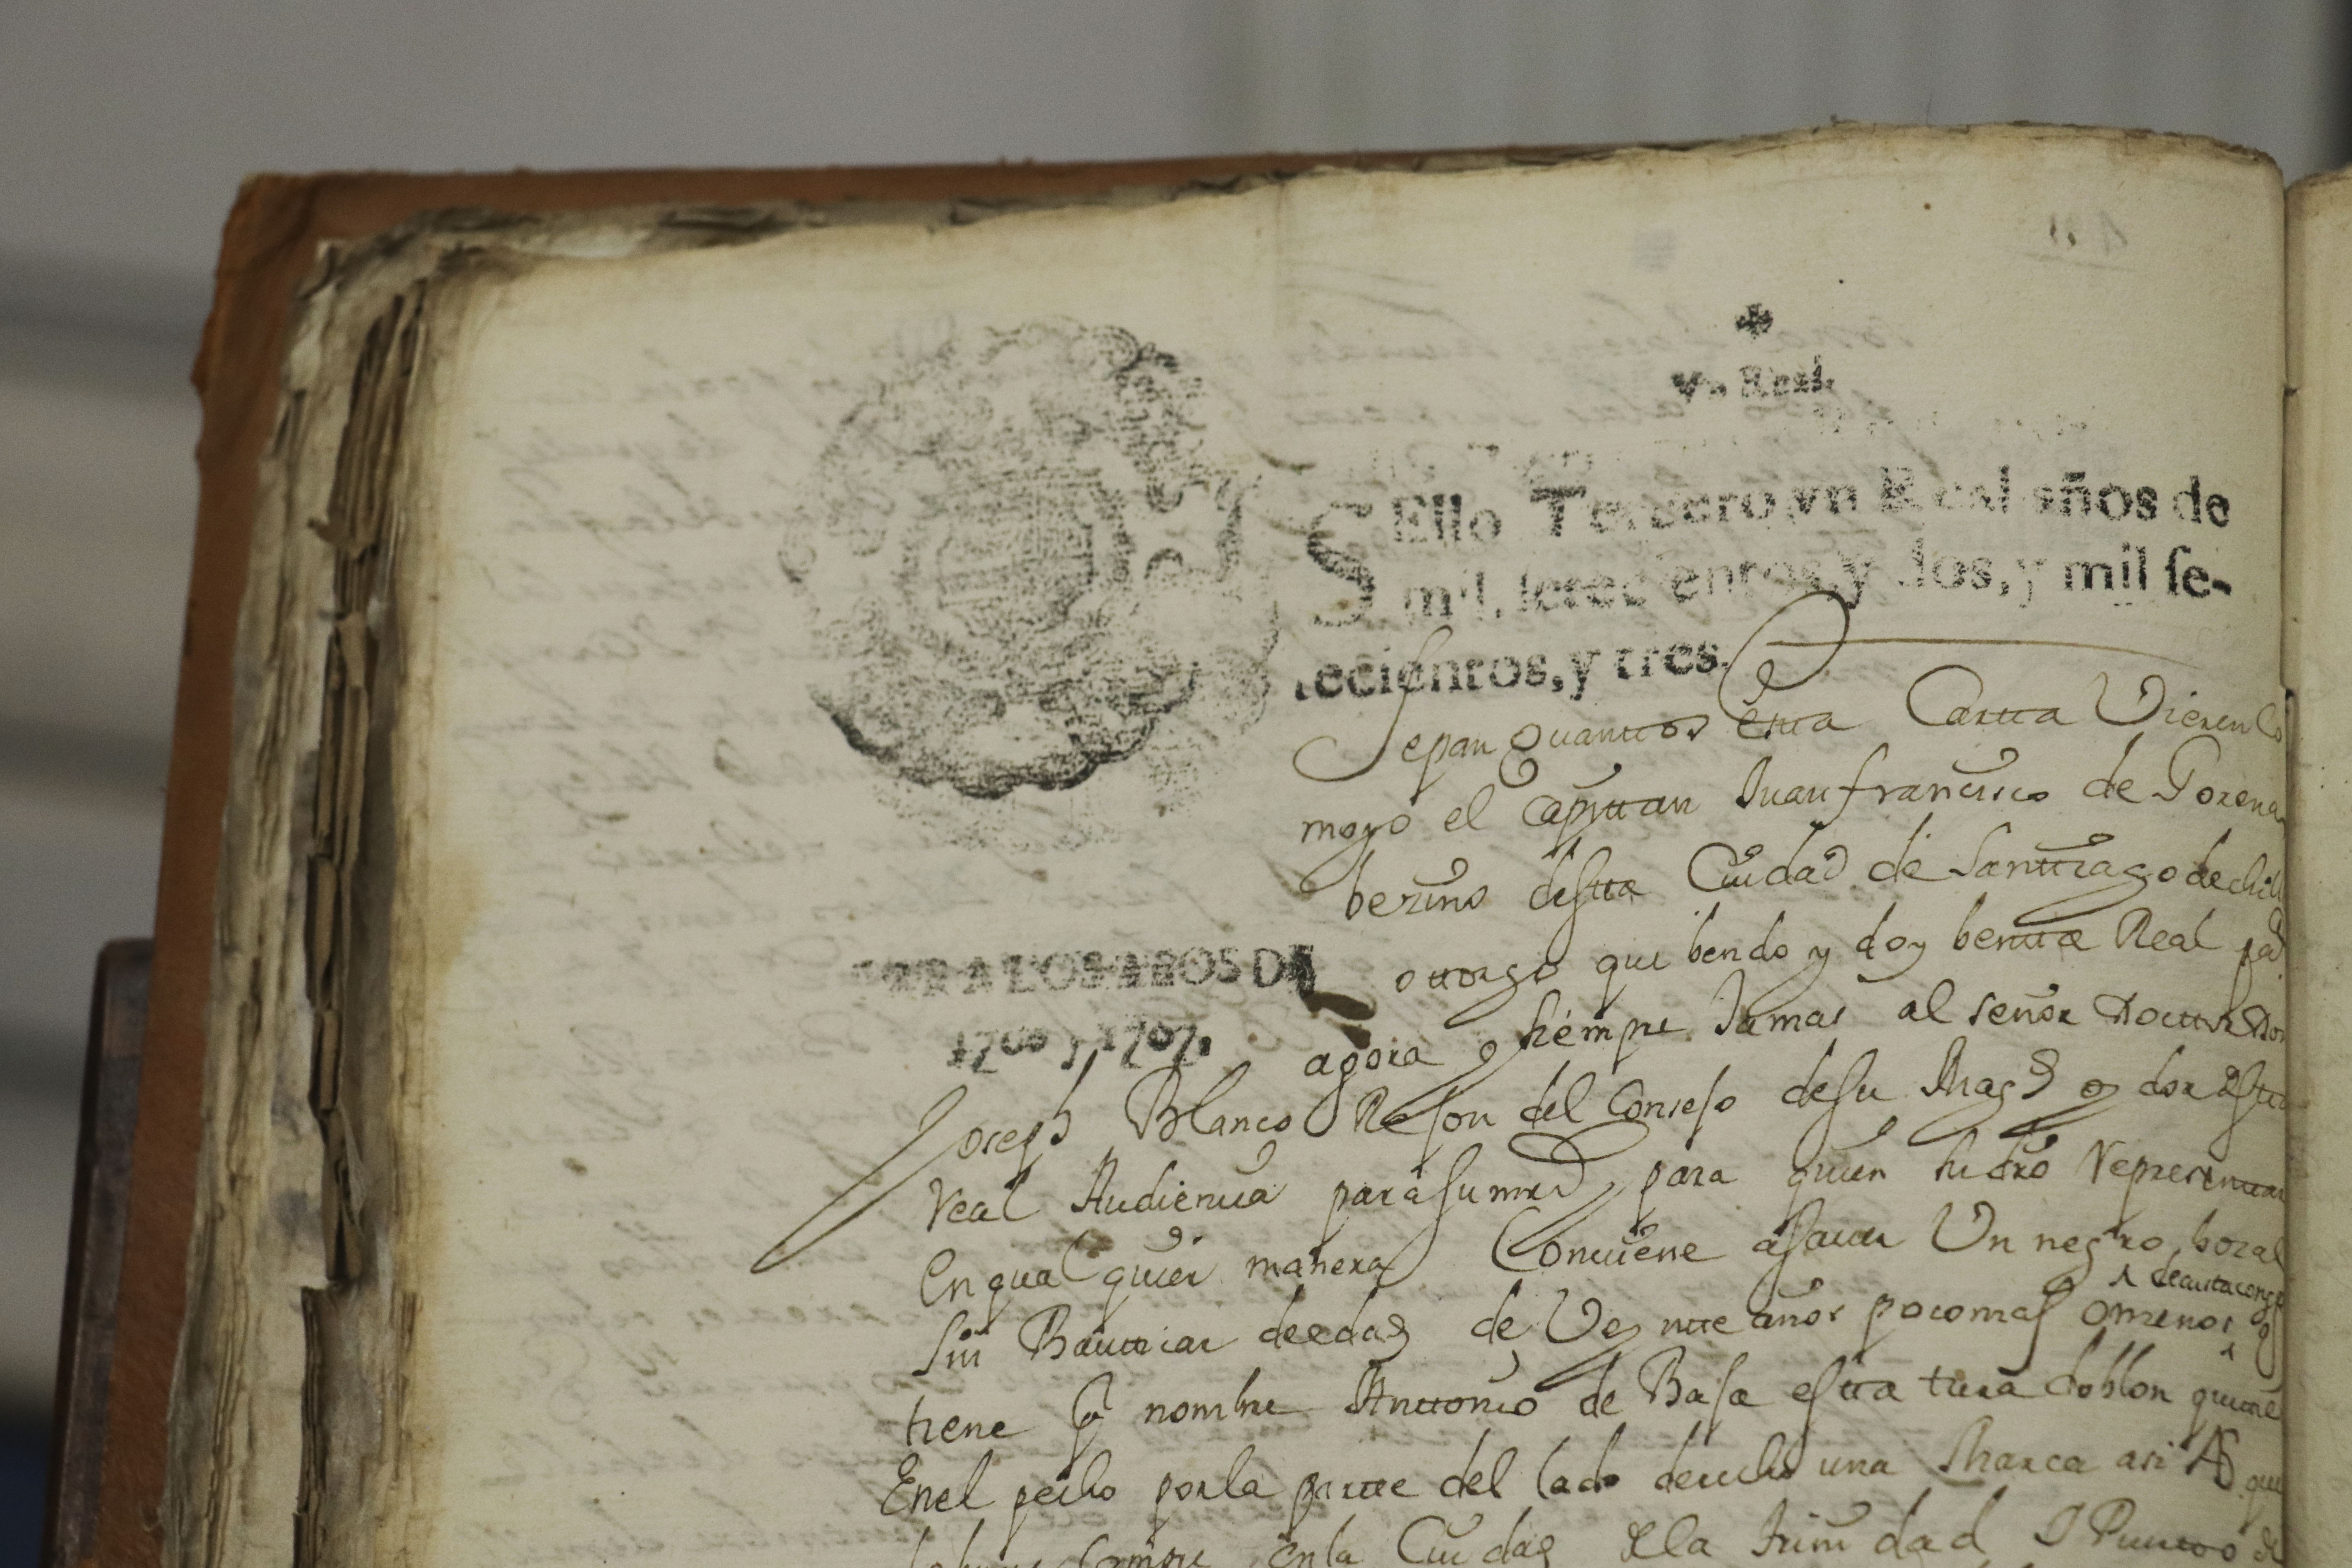 Vn Real.
SEllo Tercero, vn Real, años de
mil, setecientos, y dos, y mil se-
tecientos, y tres.
Sepan quantos esta Carta Vieren Co
mo yo el Capitan Juan francisco de Gorena
bezino desta Ciudad de Santiago de chile
otorgo que bendo y doy benta Real pa
PARA LOS AÑOS DE
1706 y 1707.
agora y siempre Jamas al señor Doctor Don
Joseph Blanco Reson del Consejo de su Magd y dor desta
Real Audiencia para su mrd para quien su dro Representar
En qual quier manera Conviene a saver Un negro bozal
de casta congo
Sin Bautizar de edad de Veynte años poco mas o menos y
tiene por nombre Antonio de Baja estatura doblon que tiene
En el pecho por la parte del lado derecho una Marca asi AS que
compre En la Ciudad de la Trinidad Puerto de